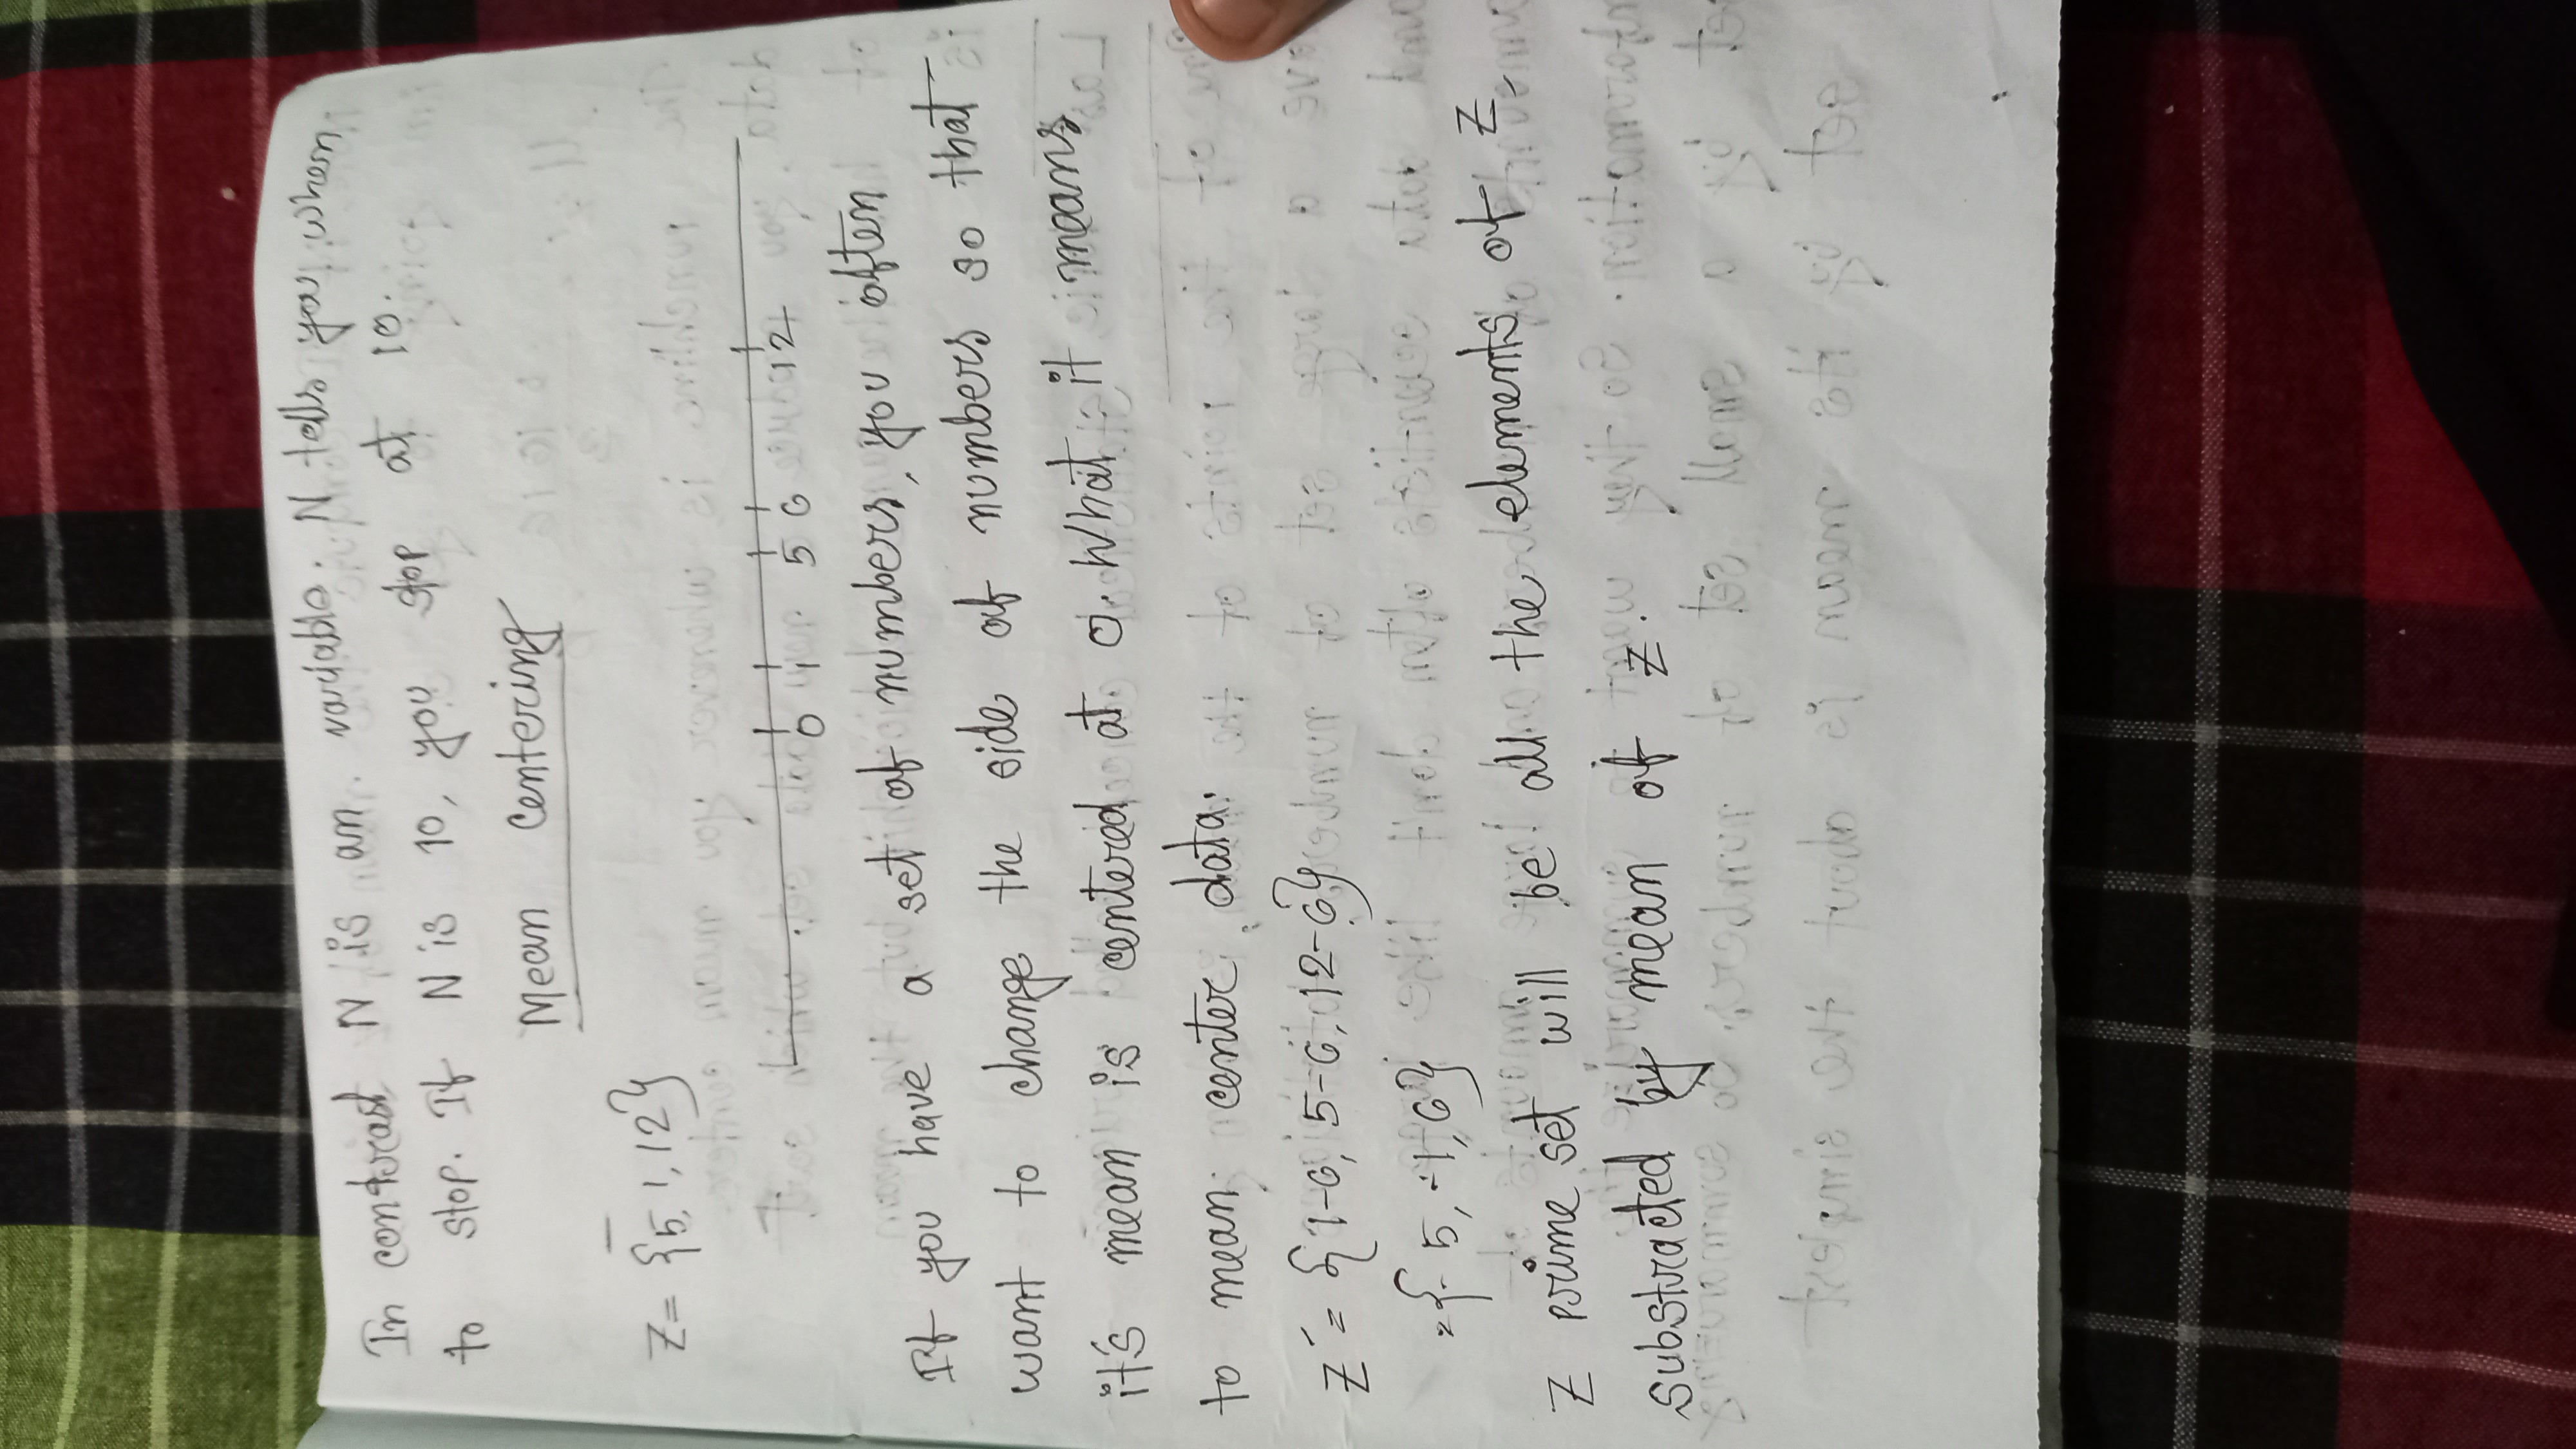 In contrast N is an variable. N tells you when
to stop. If N is 10, you stop at 10.
Mean Centering
Z= {5, 1, 12}
0 1 5 6 12
If you have a set of numbers, you often
want to change the side of numbers so that
it's mean is centered at 0. What it means
to mean center data.
Z′ = {1-6, 5-6, 12-6}
= {-5, -1, 6}
Z prime set will be all the elements of Z
substracted by mean of Z.